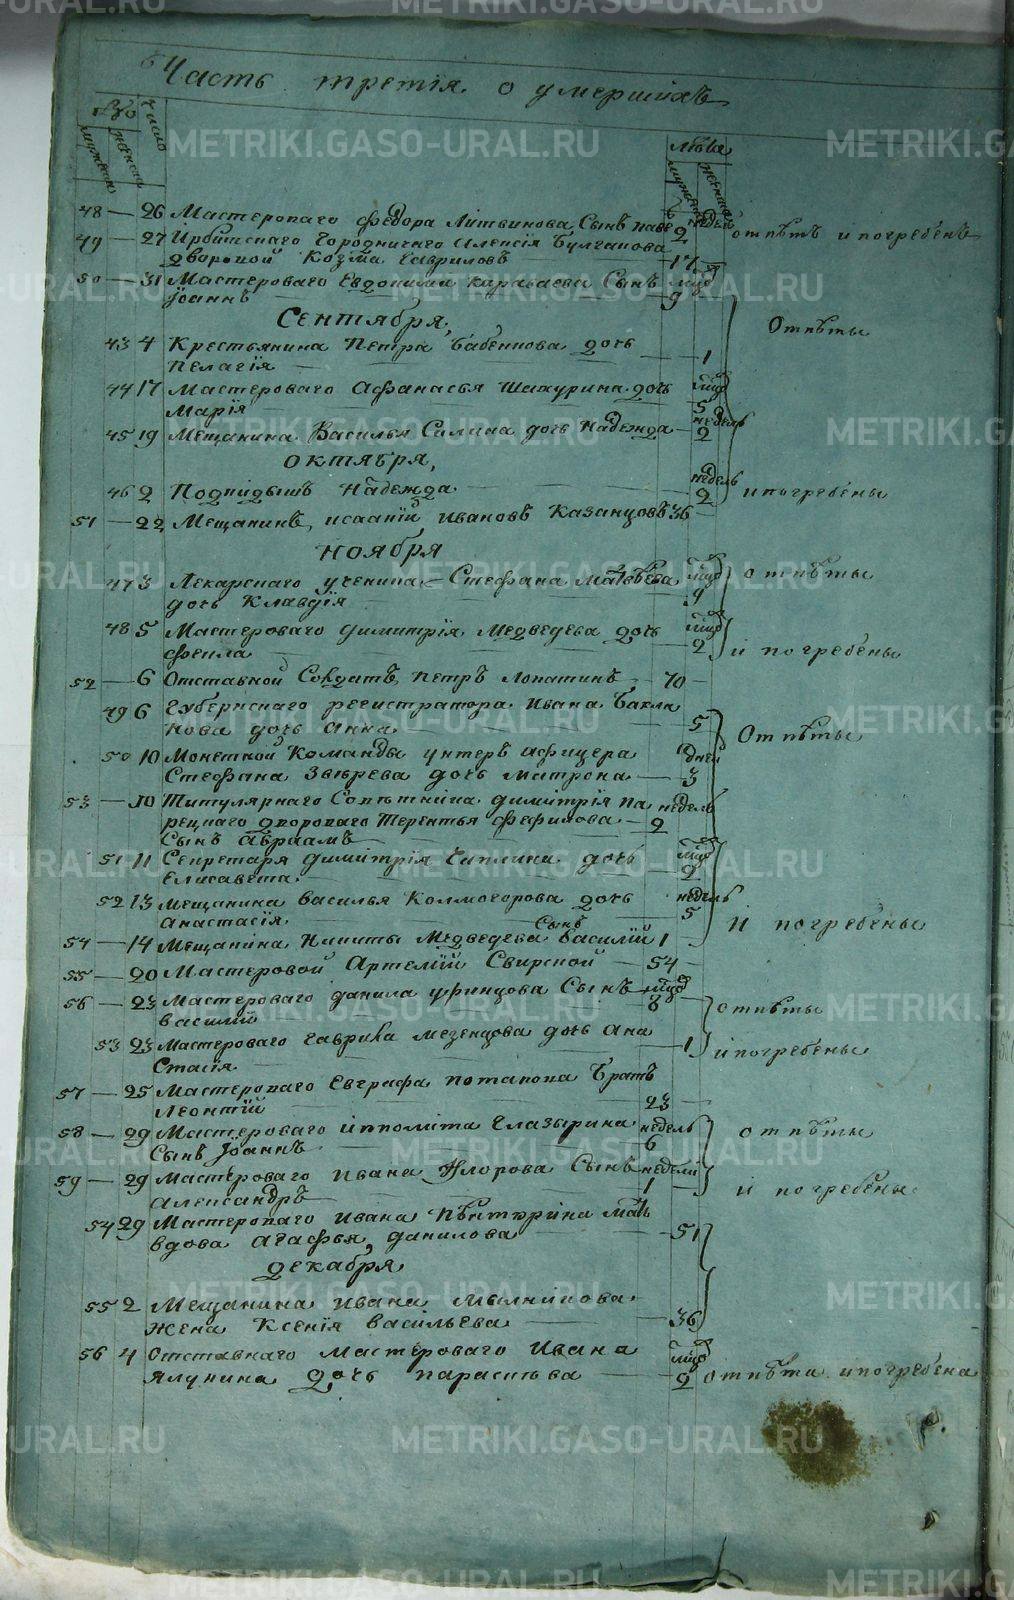 Часть третія о умершихъ
№ число
мужеска женска
лѣта
мужеска женска
48 — 26 Мастероваго Федора Литвинова Сынъ Паве недель 2
49 — 27 Ирбитскаго Городничаго Алексія Булгакова отпѣтъ и погребенъ
дворовой Козма Гавриловъ — 17 —
50 — 31 Мастероваго Евдокима Караваева Сынъ
Іоаннъ — 9
Сентября,
43 4 Крестьянина Петра Бабеннова дочь
Пелагія — 1
Отпѣты
44 17 Мастероваго Афанасья Шакурина дочь
Марія — 5
45 19 Мещанина Василья Силина дочь Надежда — недель 2
Октября,
46 2 Подкидышъ Надежда недель 2 и погребены
51 — 22 Мещанинъ, Исаакій Ивановъ Казанцовъ 36 —
Ноября
47 3 Лекарскаго ученика Стефана Матвѣева отпѣты
дочь Клавдія
48 5 Мастероваго Димитрія Медведева дочь
Фекла — 2 и погребены
52 — 6 Отставной Солдатъ Петръ Лопатинъ — 70 —
49 6 Губернскаго регистратора Ивана Бакла
нова дочь Анна — 5 Отпѣты
50 10 Монетной Команды унтеръ афицера дней
Стефана Звѣрева дочь Матрона — 3
53 — 10 Титулярнаго Совѣтника Димитрія Па недель
рецкаго двороваго Терентья Фефилова — 2
Сынъ Авраамъ
51 11 Секретаря Димитрія Чиплина дочь
Елисавета — 2
52 13 Мещанина Василья Колмогорова дочь недель
Анастасія — 5 И погребены
54 — 14 Мещанина Никиты Медведева Сынъ Василій 1
55 — 20 Мастеровой Артемій Свирской — 54 —
56 — 23 Мастероваго Данила Уфинцова Сынъ 8 отпѣты
Василій
53 23 Мастероваго Гаврила Мезенцова дочь Ана — 1 и погребены
стасія
57 — 25 Мастероваго Евграфа Потапова Братъ
Леонтій — 23 —
58 — 29 Мастероваго Ипполита Глазырина недель отпѣты
Сынъ Іоаннъ — 6
59 — 29 Мастероваго Ивана Флорова Сынъ недели
Александръ — 1 — и погребены
54 29 Мастероваго Ивана Пѣнтюрина мать
вдова Агафья Данилова — 51
Декабря
55 2 Мещанина Ивана Мылникова
Жена Ксенія Васильева — 36
56 4 Отставнаго Мастероваго Ивана
Ялунина дочь Парасковья — 2 отпѣта и погребена